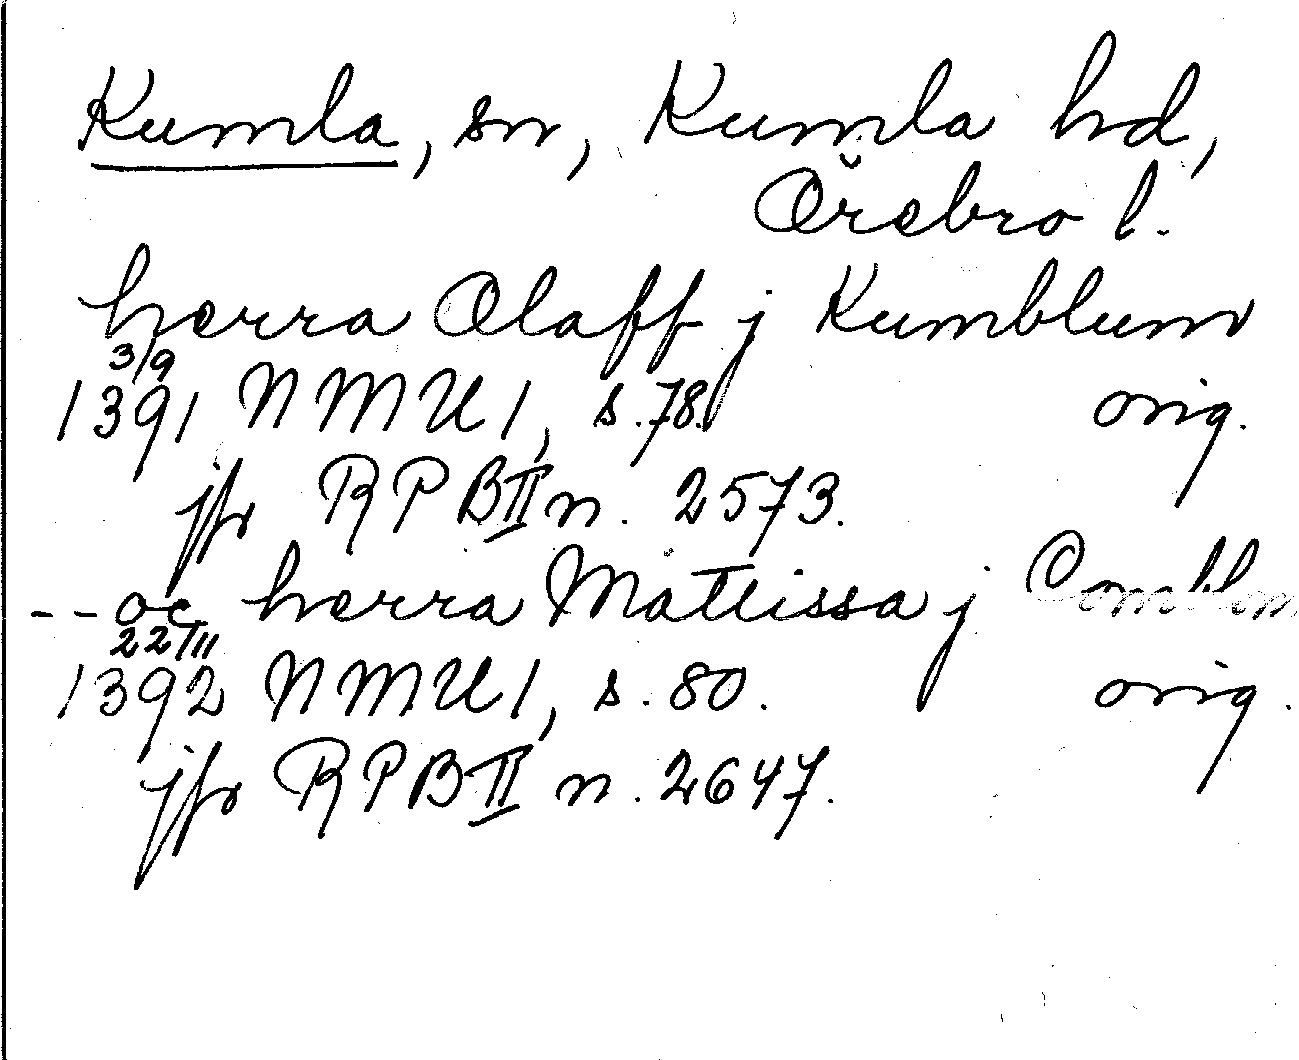 Kumla, sn, Kumla hd,
Örebro l.
herra Olaff j Kumblum
3/9
1391 NMU 1, s. 78. orig.
jfr RPB II n. 2573.
-- oc herra Mattissa j
22/11
1392 NMU 1, s. 80. orig.
jfr RPB II n. 2647.